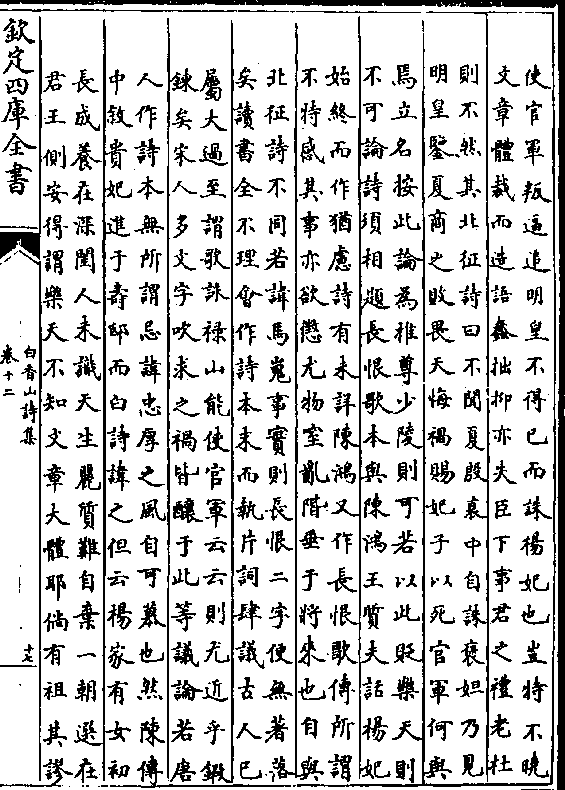 使官軍叛逼迫明皇不得已而誅楊妃也豈特不曉
文章體裁而造語蠢拙抑亦失臣下事君之禮老杜
則不然其北征詩曰不聞夏殷衰中自誅褒妲乃見
明皇鑒夏商之敗畏天悔禍賜妃子以死官軍何與
焉立名按此論為推尊少陵則可若以此貶樂天則
不可論詩須相題長恨歌本與陳鴻王質夫話楊妃
始終而作猶慮詩有未詳陳鴻又作長恨歌傳所謂
不特感其事亦欲懲尤物窒亂階垂于將來也自與
北征詩不同若諱馬嵬事實則長恨二字便無著落
矣讀書全不理會作詩本末而執片詞肆議古人已
屬大過至謂歌詠祿山能使官軍云云則尤近乎鍛
鍊矣宋人多文字吹求之禍皆釀于此等議論若唐
人作詩本無所謂忌諱忠厚之風自可慕也然陳傳
中敘貴妃進于壽邸而白詩諱之但云楊家有女初
長成養在深閨人未識天生麗質難自棄一朝選在
君王側安得謂樂天不知文章大體耶倘有祖其謬
欽定四庫全書
白香山詩集
卷十二
十七